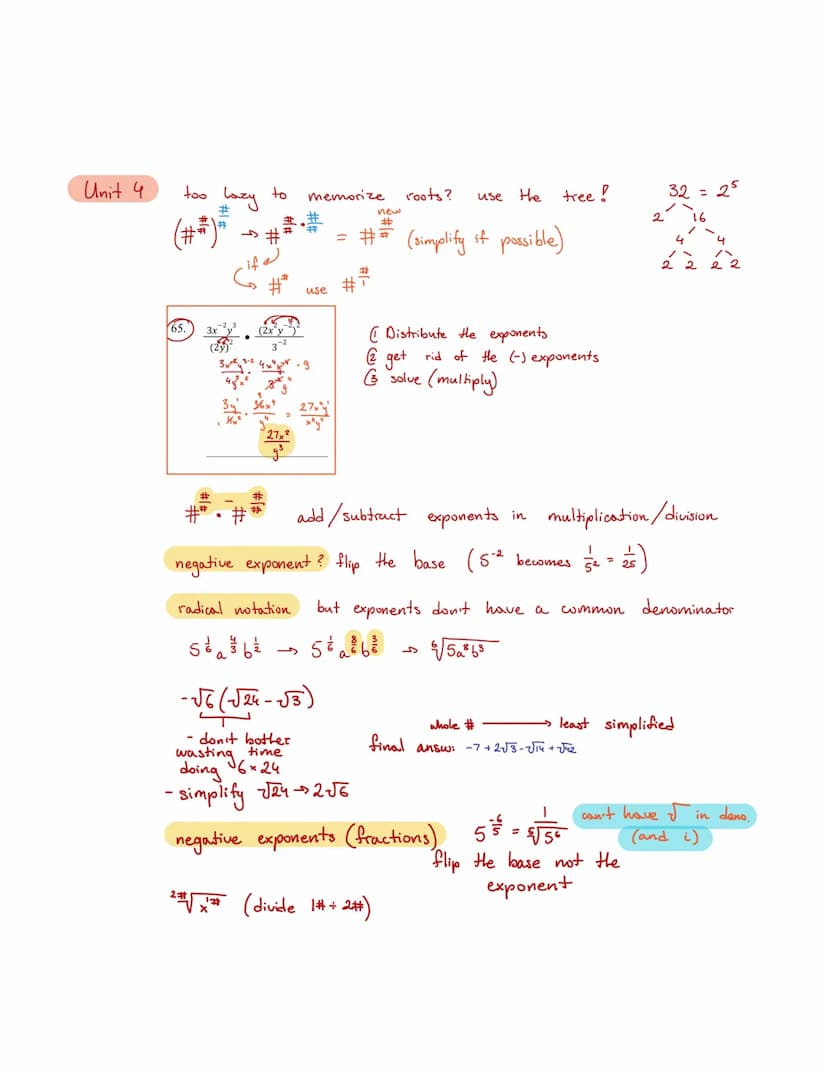 Unit 4 too lazy to memorize roots? use the tree! 32 = 2⁵
2 16
4 4
2 2 2 2
(#^(#/#))^(#/#) → #^(#/# · #/#) = #^(new #/#) (simplify if possible)
if
↳ #^# use #^(#/1)
65. 3x⁻²y³/(2y)² • (2x²y⁻²)²/3⁻²
27x²/y³
① Distribute the exponents
② get rid of the (-) exponents
③ solve (multiply)
#^(#/#) · #^(#/#) – add/subtract exponents in multiplication/division
negative exponent? flip the base (5⁻² becomes 1/5² = 1/25)
radical notation but exponents don't have a common denominator
5^(1/6) a^(4/3) b^(1/2) → 5^(1/6) a^(8/6) b^(3/6) → ⁶√5a⁸b³
-√6(√24 - √3)
- don't bother
wasting time
doing √6×24
- simplify √24 → 2√6
whole # → least simplified
final answ: -7+2√3-√14+√42
negative exponents (fractions) 5^(-6/5) = 1/⁵√5⁶ can't have √ in deno.
(and i)
flip the base not the
exponent
²#√x¹# (divide 1# ÷ 2#)